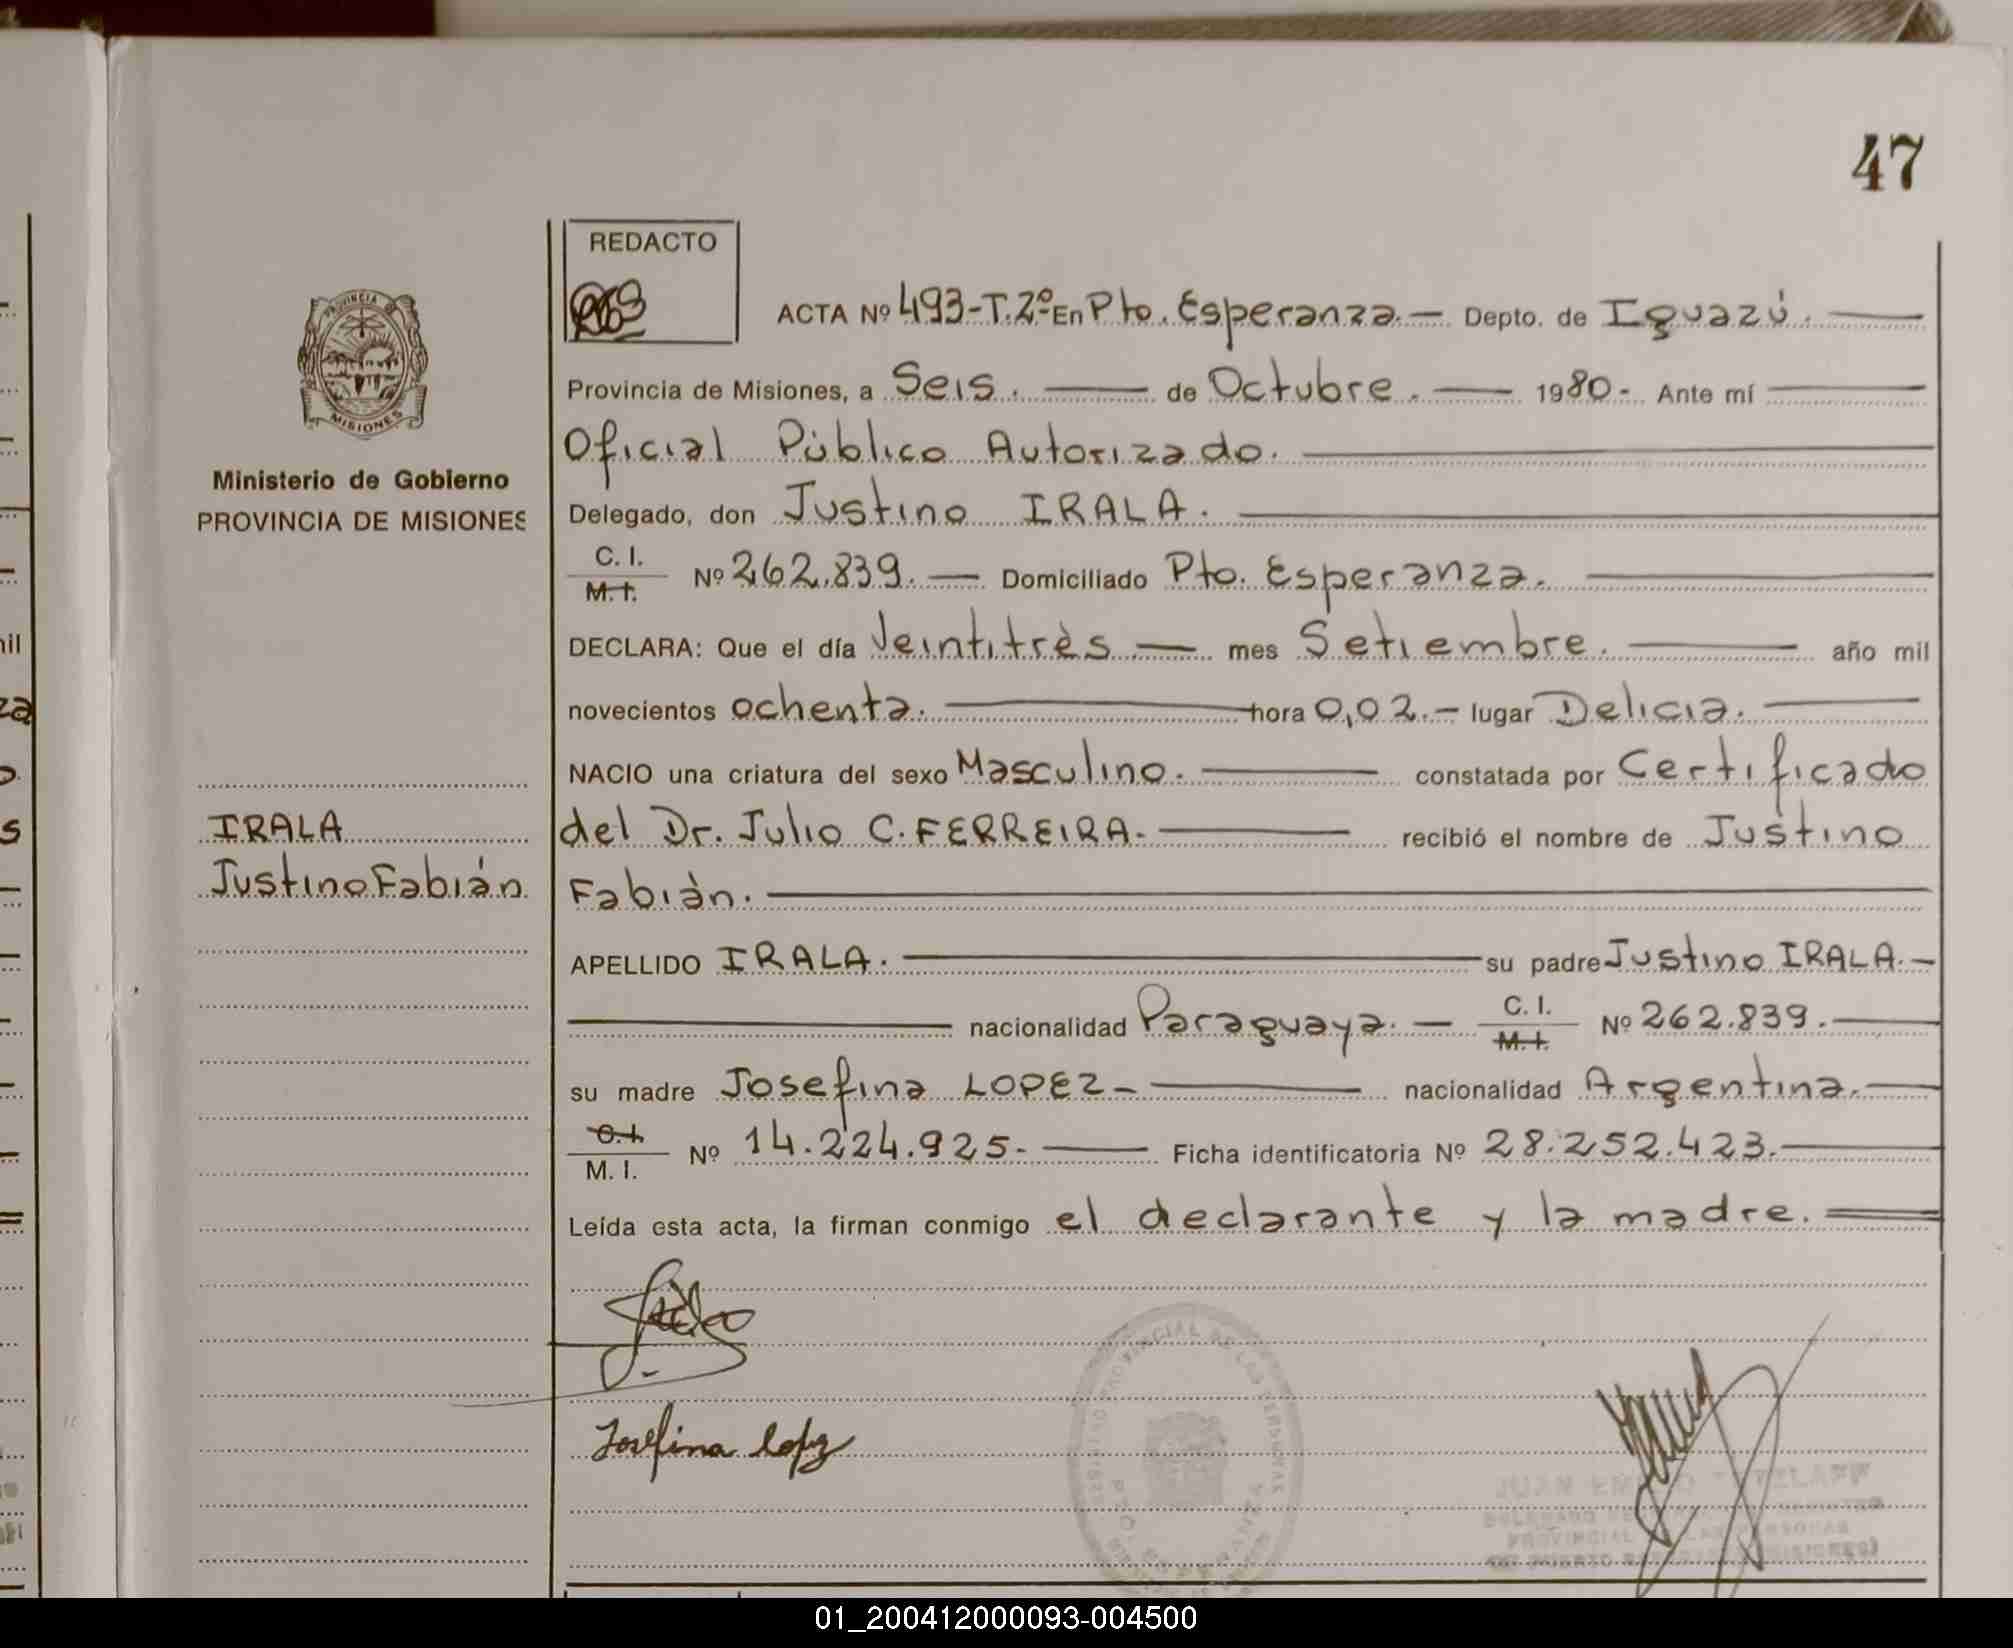 47
REDACTO
ACTA Nº 493-T.2º En Pto. Esperanza.- Depto. de Iguazú.
Provincia de Misiones, a Seis. de Octubre. 1980.- Ante mí
Oficial Público Autorizado.
Delegado, don Justino IRALA.
C. I.
M. I. Nº 262.839. Domiciliado Pto. Esperanza.
DECLARA: Que el día Veintitrès mes Setiembre. año mil
novecientos ochenta. hora 0,02.- lugar Delicia.
NACIO una criatura del sexo Masculino. constatada por Certificado
del Dr. Julio C. FERREIRA.- recibió el nombre de Justino
Fabiàn.
APELLIDO IRALA. su padre Justino IRALA.-
nacionalidad Paraguaya.- C. I.
M. I. Nº 262.839.
su madre Josefina LOPEZ- nacionalidad Argentina.
C. I.
M. I. Nº 14.224.925.- Ficha identificatoria Nº 28.252.423.
Leída esta acta, la firman conmigo el declarante y la madre.
Josefina Lopez
PROVINCIA
MISIONES
Ministerio de Gobierno
PROVINCIA DE MISIONES
IRALA
Justino Fabián
PROVINCIAL DE LAS PERSONAS
JUAN
PROVINCIAL DE LAS PERSONAS
nil
za
01_200412000093-004500